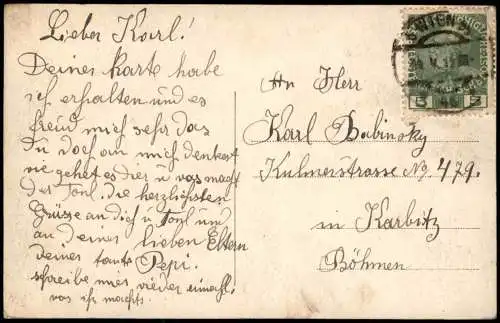 Lieber Karl!
Deine Karte habe
ich erhalten und es
freud mich sehr das
du doch an mich denkest
wie gehet es dir u was macht
der Tonl. die herzlichsten
Grüsse an dich u Tonl und
an deine lieben Eltern
deine tante Pepi.
schreibe mir wieder einmahl.
was ihr machts.
An Herr
Karl Babinsky
Kulmerstrasse No 479.
in Karbitz
Böhmen
WIEN